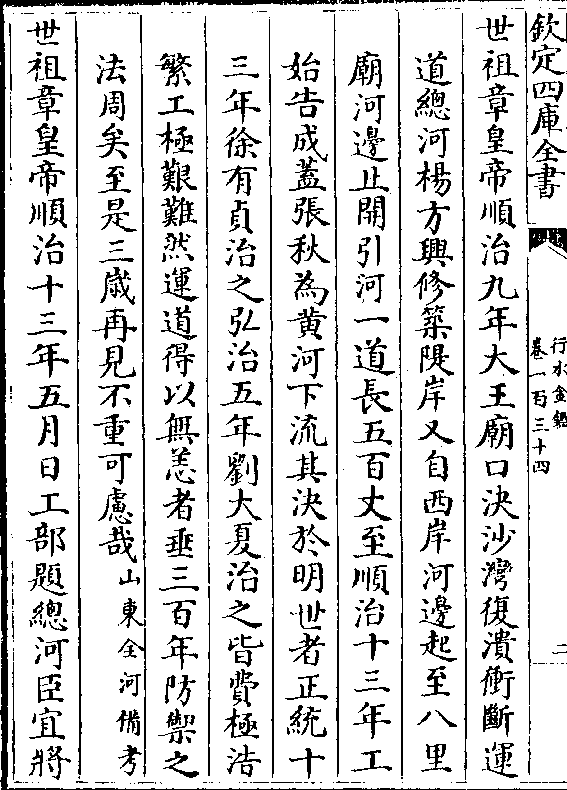 欽定四庫全書
行水金鑑
卷一百三十四
二
世祖章皇帝順治九年大王廟口決沙灣復潰衝斷運
道總河楊方興修築隄岸又自西岸河邊起至八里
廟河邊止開引河一道長五百丈至順治十三年工
始告成蓋張秋為黄河下流其決於明世者正統十
三年徐有貞治之弘治五年劉大夏治之皆費極浩
繁工極艱難然運道得以無恙者垂三百年防禦之
法周矣至是三歲再見不重可慮哉山東全河備考
世祖章皇帝順治十三年五月日工部題總河臣宜將